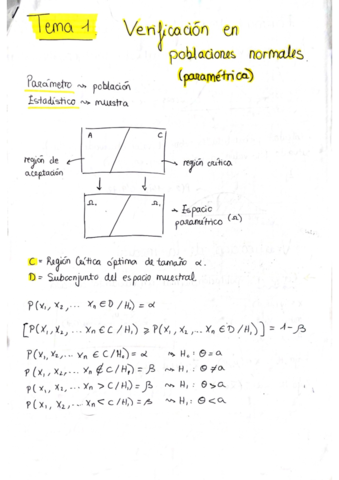 Tema 1. Verificación en
poblaciones normales.
(paramétrica)
Parámetro ⇝ población
Estadístico ⇝ muestra
A C
región de aceptación
región crítica
Ω₀ Ω₁
Espacio
paramétrico (Ω)
C = Región Crítica óptima de tamaño α.
D = Subconjunto del espacio muestral
P(X₁, X₂, ... Xn ∈ D / H₀) = α
[P(X₁, X₂, ... Xn ∈ C / H₁) ⩾ P(X₁, X₂, ... Xn ∈ D / H₁)] = 1-β
P(X₁, X₂, ... Xn ∈ C / H₀) = α ⇝ H₀: θ = a
P(X₁, X₂, ... Xn ∉ C / H₁) = β ⇝ H₁: θ ≠ a
P(X₁, X₂, ... Xn > C / H₁) = β ⇝ H₁: θ > a
P(X₁, X₂, ... Xn < C / H₁) = β ⇝ H₁: θ < a